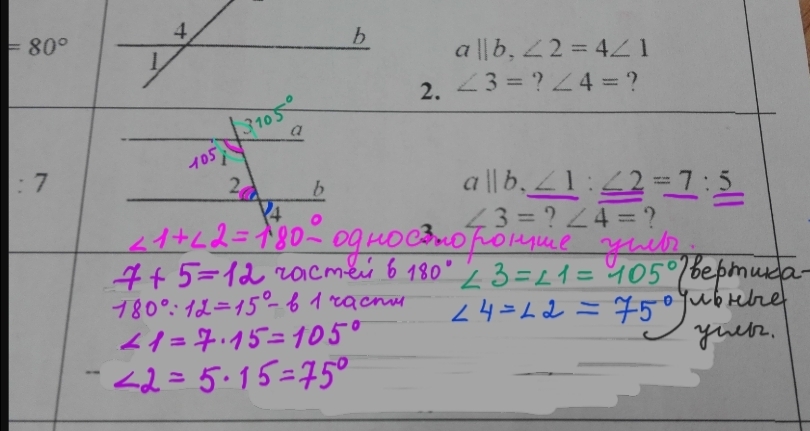 = 80°
4
b
1
a || b, ∠2 = 4∠1
2. ∠3 = ? ∠4 = ?
3 105°
a
105
1
: 7
2
b
4
a || b, ∠1 : ∠2 = 7 : 5
3. ∠3 = ? ∠4 = ?
∠1+∠2=180° - односторонние углы.
7 + 5 = 12 частей в 180°
180° : 12 = 15° - в 1 части
∠1 = 7 · 15 = 105°
∠2 = 5 · 15 = 75°
∠3 = ∠1 = 105°
∠4 = ∠2 = 75°
вертика-
льные
углы.